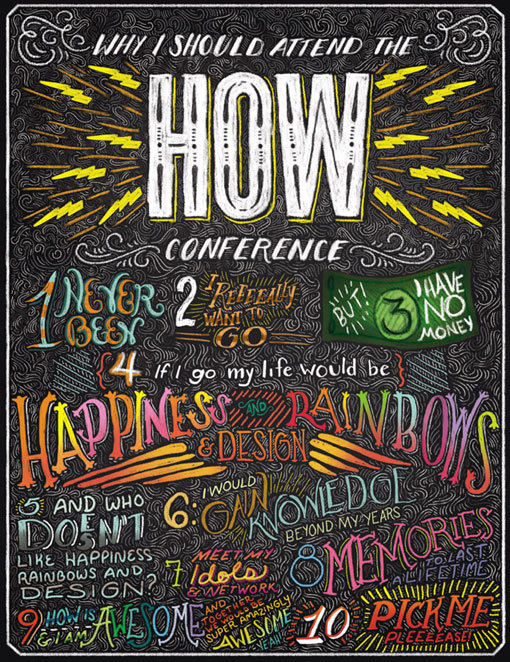 WHY I SHOULD ATTEND THE
HOW
CONFERENCE
1 NEVER
BEEN
2 I REEEEALLY
WANT TO
GO
BUT! 3 I HAVE
NO
MONEY
4 If I go my life would be
HAPPINESS AND RAINBOWS
& DESIGN
5 AND WHO
DOESN'T
LIKE HAPPINESS
RAINBOWS AND
DESIGN?
6: I WOULD
GAIN
KNOWLEDGE
BEYOND MY YEARS
7 MEET MY
Idols
& NETWORK
8 MEMORIES
TO LAST
A LIFETIME
9 HOW IS
& I AM AWESOME
AND
TOGETHER
WE'D BE
SUPER AMAZINGLY
AWESOME
YEAH!
10 PICK ME
PLEEEEASE!